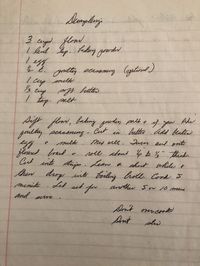 Dumplings
3 cups flour
1 tsp. baking powder
1 egg
½ t. poultry seasoning (optional)
1 cup milk
⅓ cup soft butter
1 tsp. salt
Sift flour, baking powder, salt & if you
poultry seasoning. Cut in butter. Add beaten
egg & milk. Mix well. Turn out onto
floured board & roll about ¼ to ½" thick
Cut into strips. Leave a short while &
then drop into boiling broth. Cook 5
minutes. Let set for another 5 or 10 mins
and serve.
Don't overcook
Don't stir